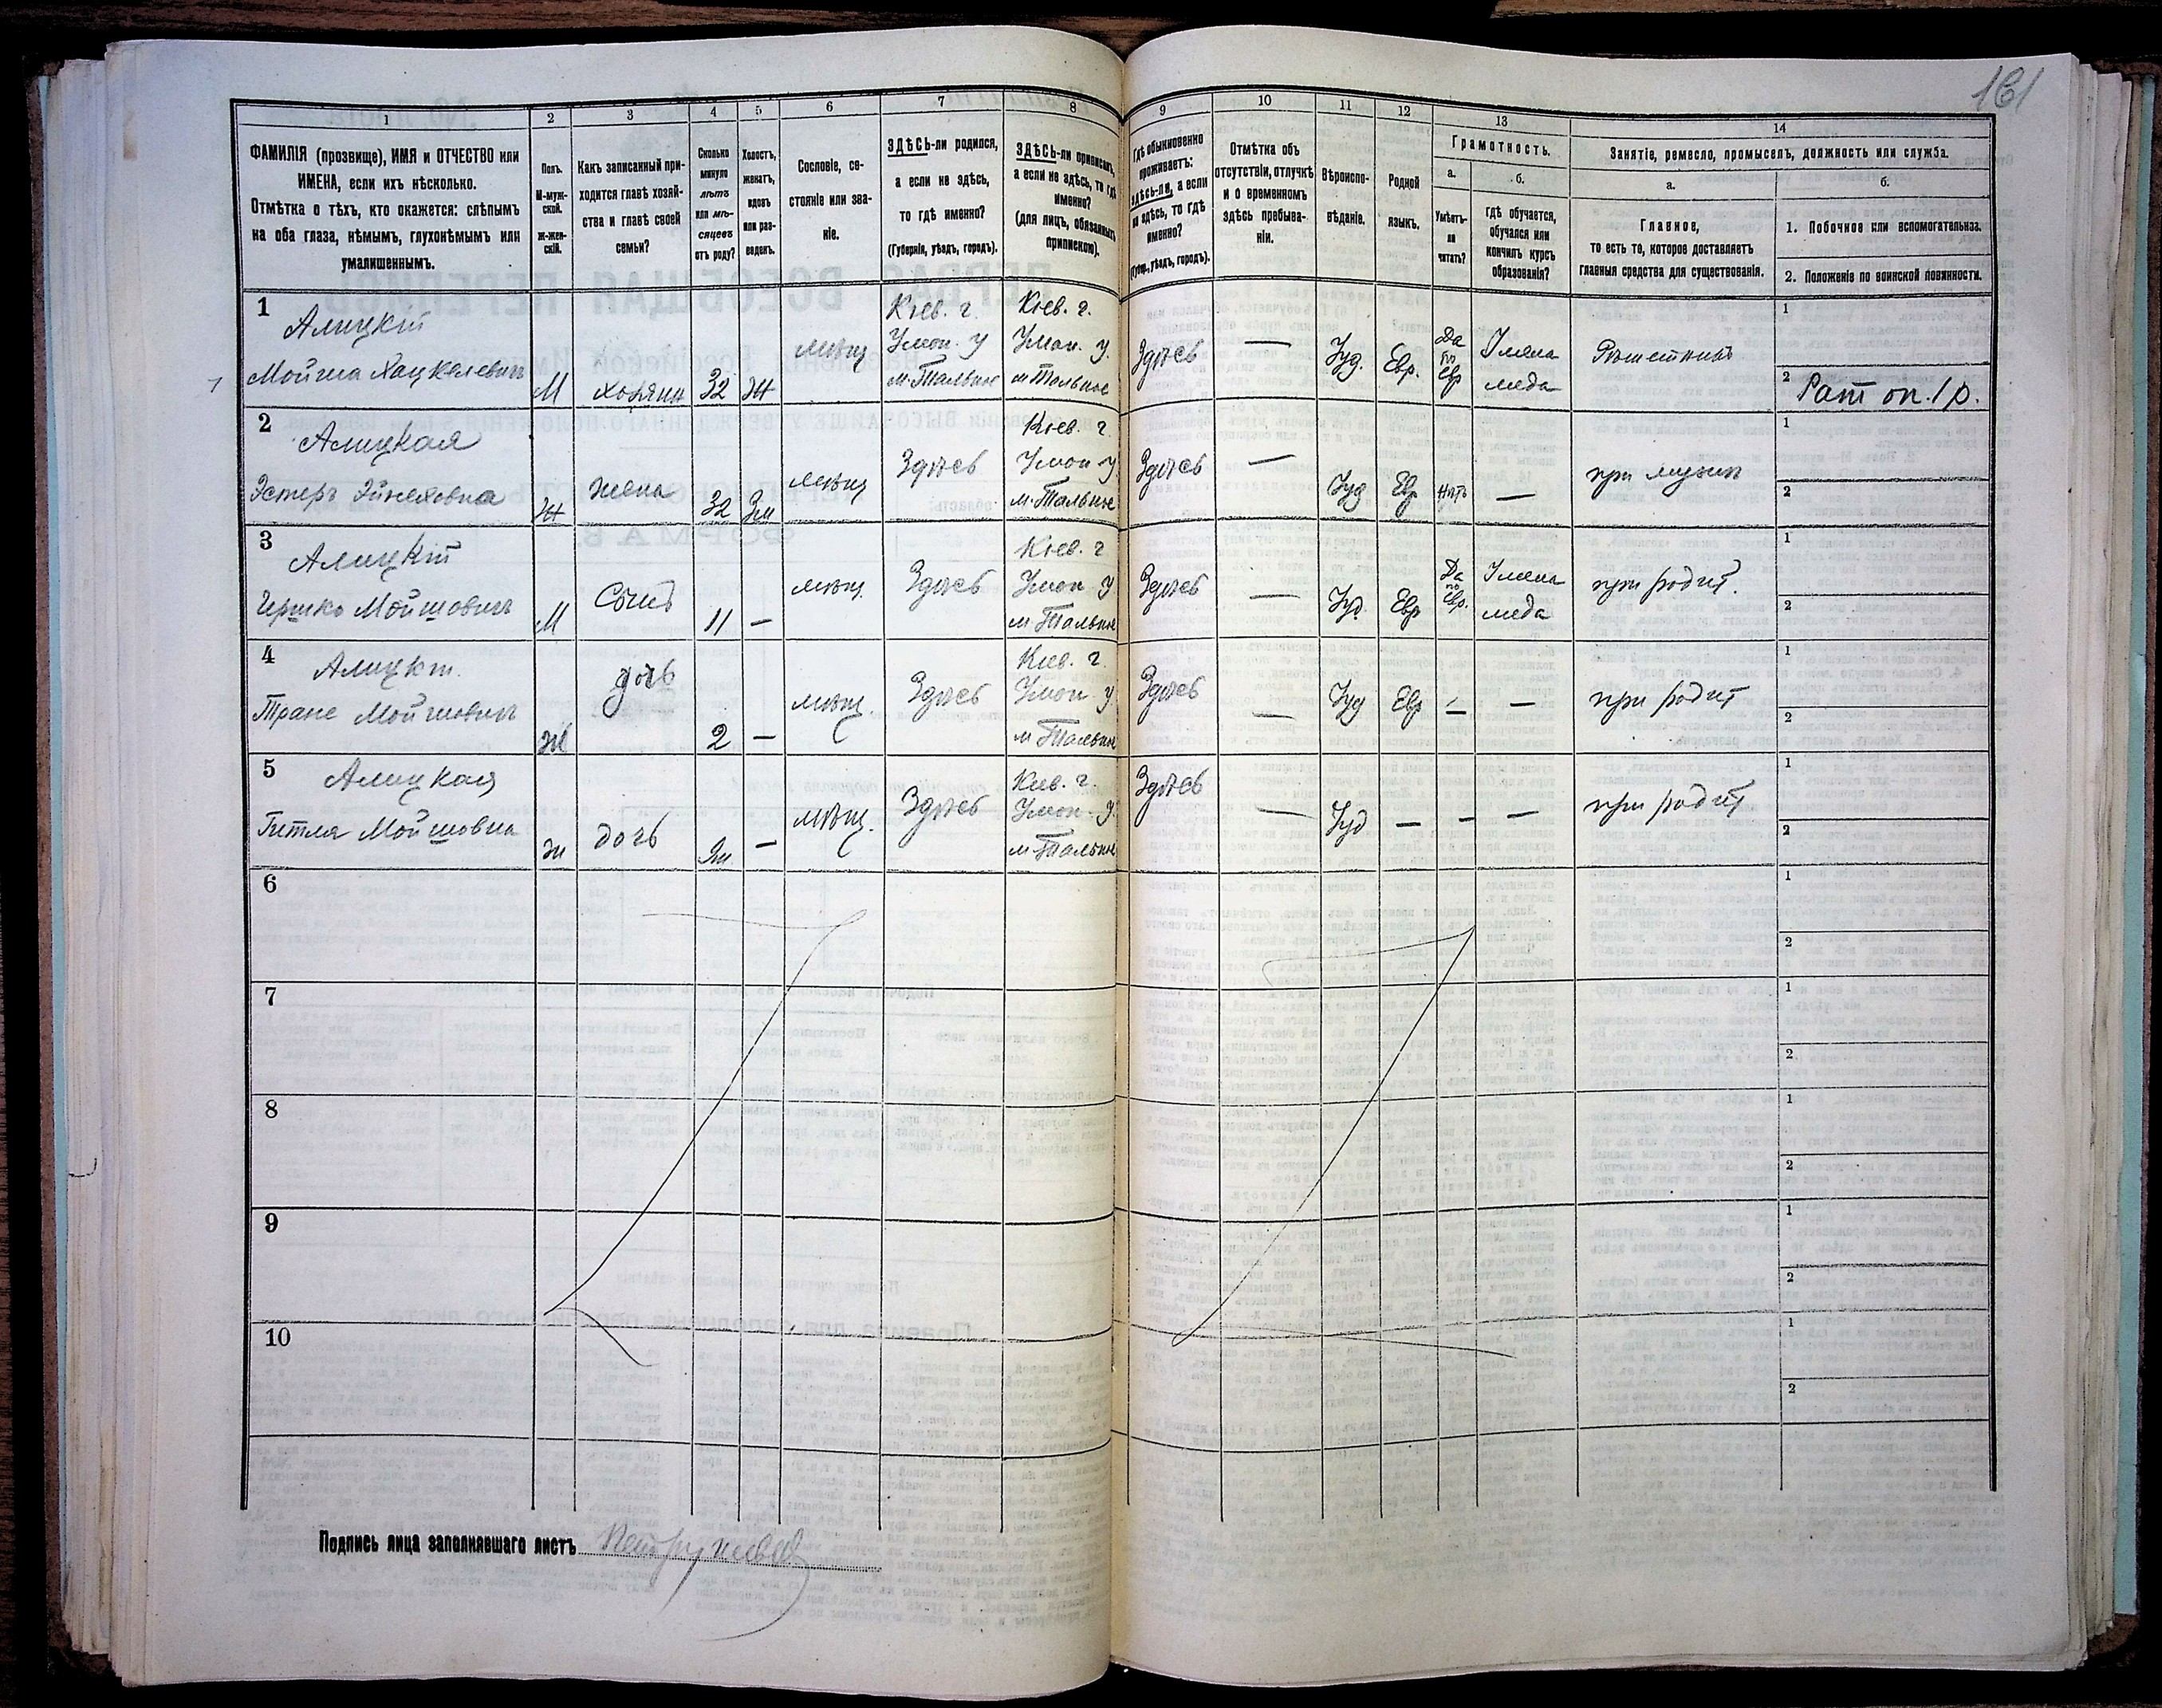 161
1
2
3
4
5
6
7
8
9
10
11
12
13
14
ФАМИЛІЯ (прозвище), ИМЯ и ОТЧЕСТВО или
ИМЕНА, если ихъ нѣсколько.
Отмѣтка о тѣхъ, кто окажется: слѣпымъ
на оба глаза, нѣмымъ, глухонѣмымъ или
умалишеннымъ.
Полъ.
М-муж-
ской.
Ж-жен-
скій.
Какъ записанный при-
ходится главѣ хозяй-
ства и главѣ своей
семьи?
Сколько
минуло
лѣтъ
или мѣ-
сяцевъ
отъ роду?
Холостъ,
женатъ,
вдовъ
или раз-
веденъ.
Сословіе, со-
стояніе или зва-
ніе.
ЗДѢСЬ-ли родился,
а если не здѣсь,
то гдѣ именно?
(Губернія, уѣздъ, городъ).
ЗДѢСЬ-ли приписанъ,
а если не здѣсь, то гдѣ
именно?
(для лицъ, обязанныхъ
припискою).
Гдѣ обыкновенно
проживаетъ:
здѣсь-ли, а если
не здѣсь, то гдѣ
именно?
(Губ., уѣздъ, городъ).
Отмѣтка объ
отсутствіи, отлучкѣ
и о временномъ
здѣсь пребыва-
ніи.
Вѣроиспо-
вѣданіе.
Родной
языкъ.
Грамотность.
а.
Умѣетъ-
ли
читать?
б.
гдѣ обучается,
обучался или
кончилъ курсъ
образованія?
Занятіе, ремесло, промыселъ, должность или служба.
а.
Главное,
то есть то, которое доставляетъ
главныя средства для существованія.
б.
1. Побочное или вспомогательное.
2. Положеніе по воинской повинности.
1
Алицкій
Мойша Хацкелевичъ
М
хозяинъ
32
Ж
мѣщ
Кіев. г.
Уман. у
м. Тальное
Кіев. г.
Уман. у.
м Тальное
Здѣсь
—
Іуд.
Евр.
Да
по
евр
У мела
меда
1
2
Рат оп. 1 р.
2
Алицкая
Эстеръ
Ж
жена
32
Зм
мѣщ
Здѣсь
Кіев. г.
Уман у
м. Тальное
Здѣсь
—
Іуд
Евр
нѣтъ
—
при мужѣ
1
2
3
Алицкій
Гершко Мойшовичъ
М
Сынъ
11
—
мѣщ.
Здѣсь
Кіев. г
Уман у
м Тальное
Здѣсь
—
Іуд.
Евр
Да
по
Евр.
У мела
меда
при родит.
1
2
4
Алицкі
Мойшовичъ
Ж
дочь
2
—
мѣщ.
Здѣсь
Кіев. г
Уман у
м Тальное
Здѣсь
—
Іуд
Евр
—
—
при родит
1
2
5
Алицкая
Гитля Мойшовна
Ж
дочь
—
мѣщ.
Здѣсь
Кіев. г.
Уман. у
м Тальное
Здѣсь
—
Іуд
—
—
—
при родит
1
2
6
1
2
7
1
2
8
1
2
9
1
2
10
1
2
Подпись лица заполнявшаго листъ